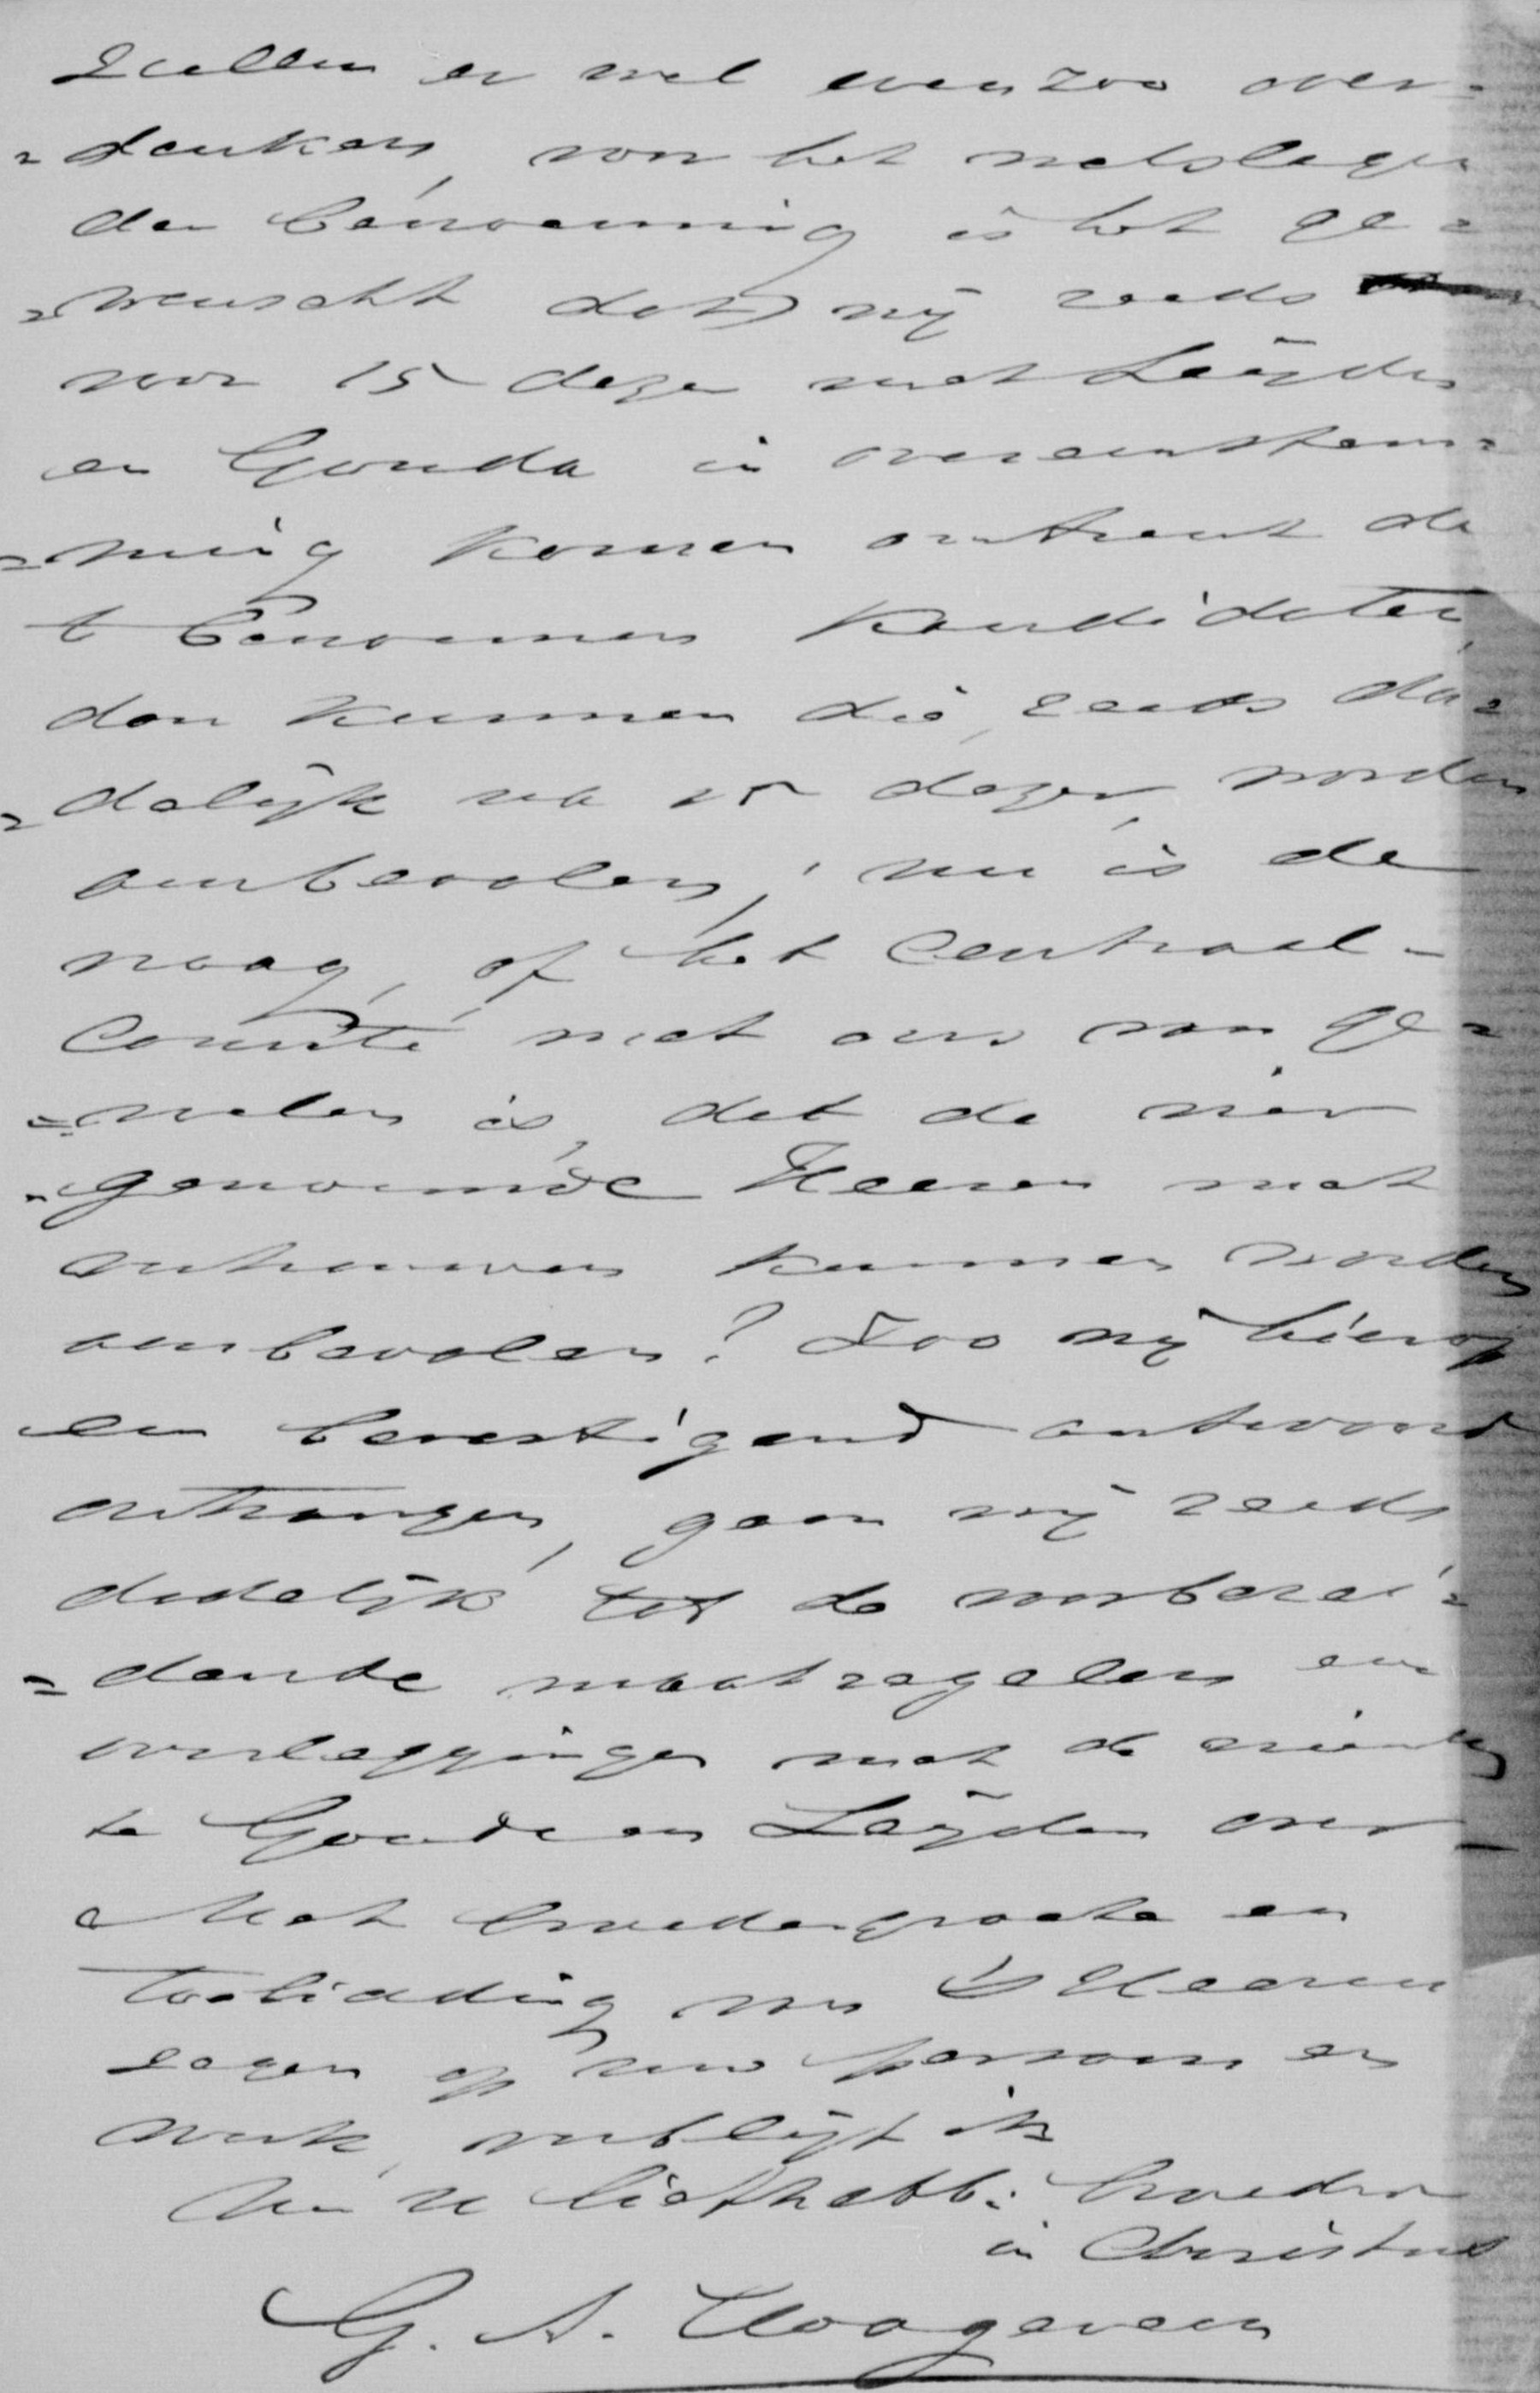 Zullen er wel even zoo over=
=denken, voor het welslagen
der benoeming is het ge=
=wenscht dat wij reeds
voor 15 dezer met Leijden
en Gouda in overeenstem=
=ming komen omtrent de
te benoemen Kandidaten,
dan kunnen die, reeds da=
=delijk na 15 dezer, worden
aanbevolen; nu is de
vraag, of het Centraal-
Comité met ons van ge=
=voelen is, dat de vier
genoemde Heeren met
vertrouwen kunnen worden
aanbevolen? Zoo wij hierop
een bevestigend antwoord
ontvangen, gaan wij reeds
dadelijk tot de voorberei=
=dende maatregelen en
overleggingen met de vrienden
te Gouda en Leijden over
Met broedergroete en
toebidding van 's Heeren
zegen op uw persoon en
werk, verblijf ik
Uw U liefhebb: broeder
in Christus
G. A. Hoogeveen